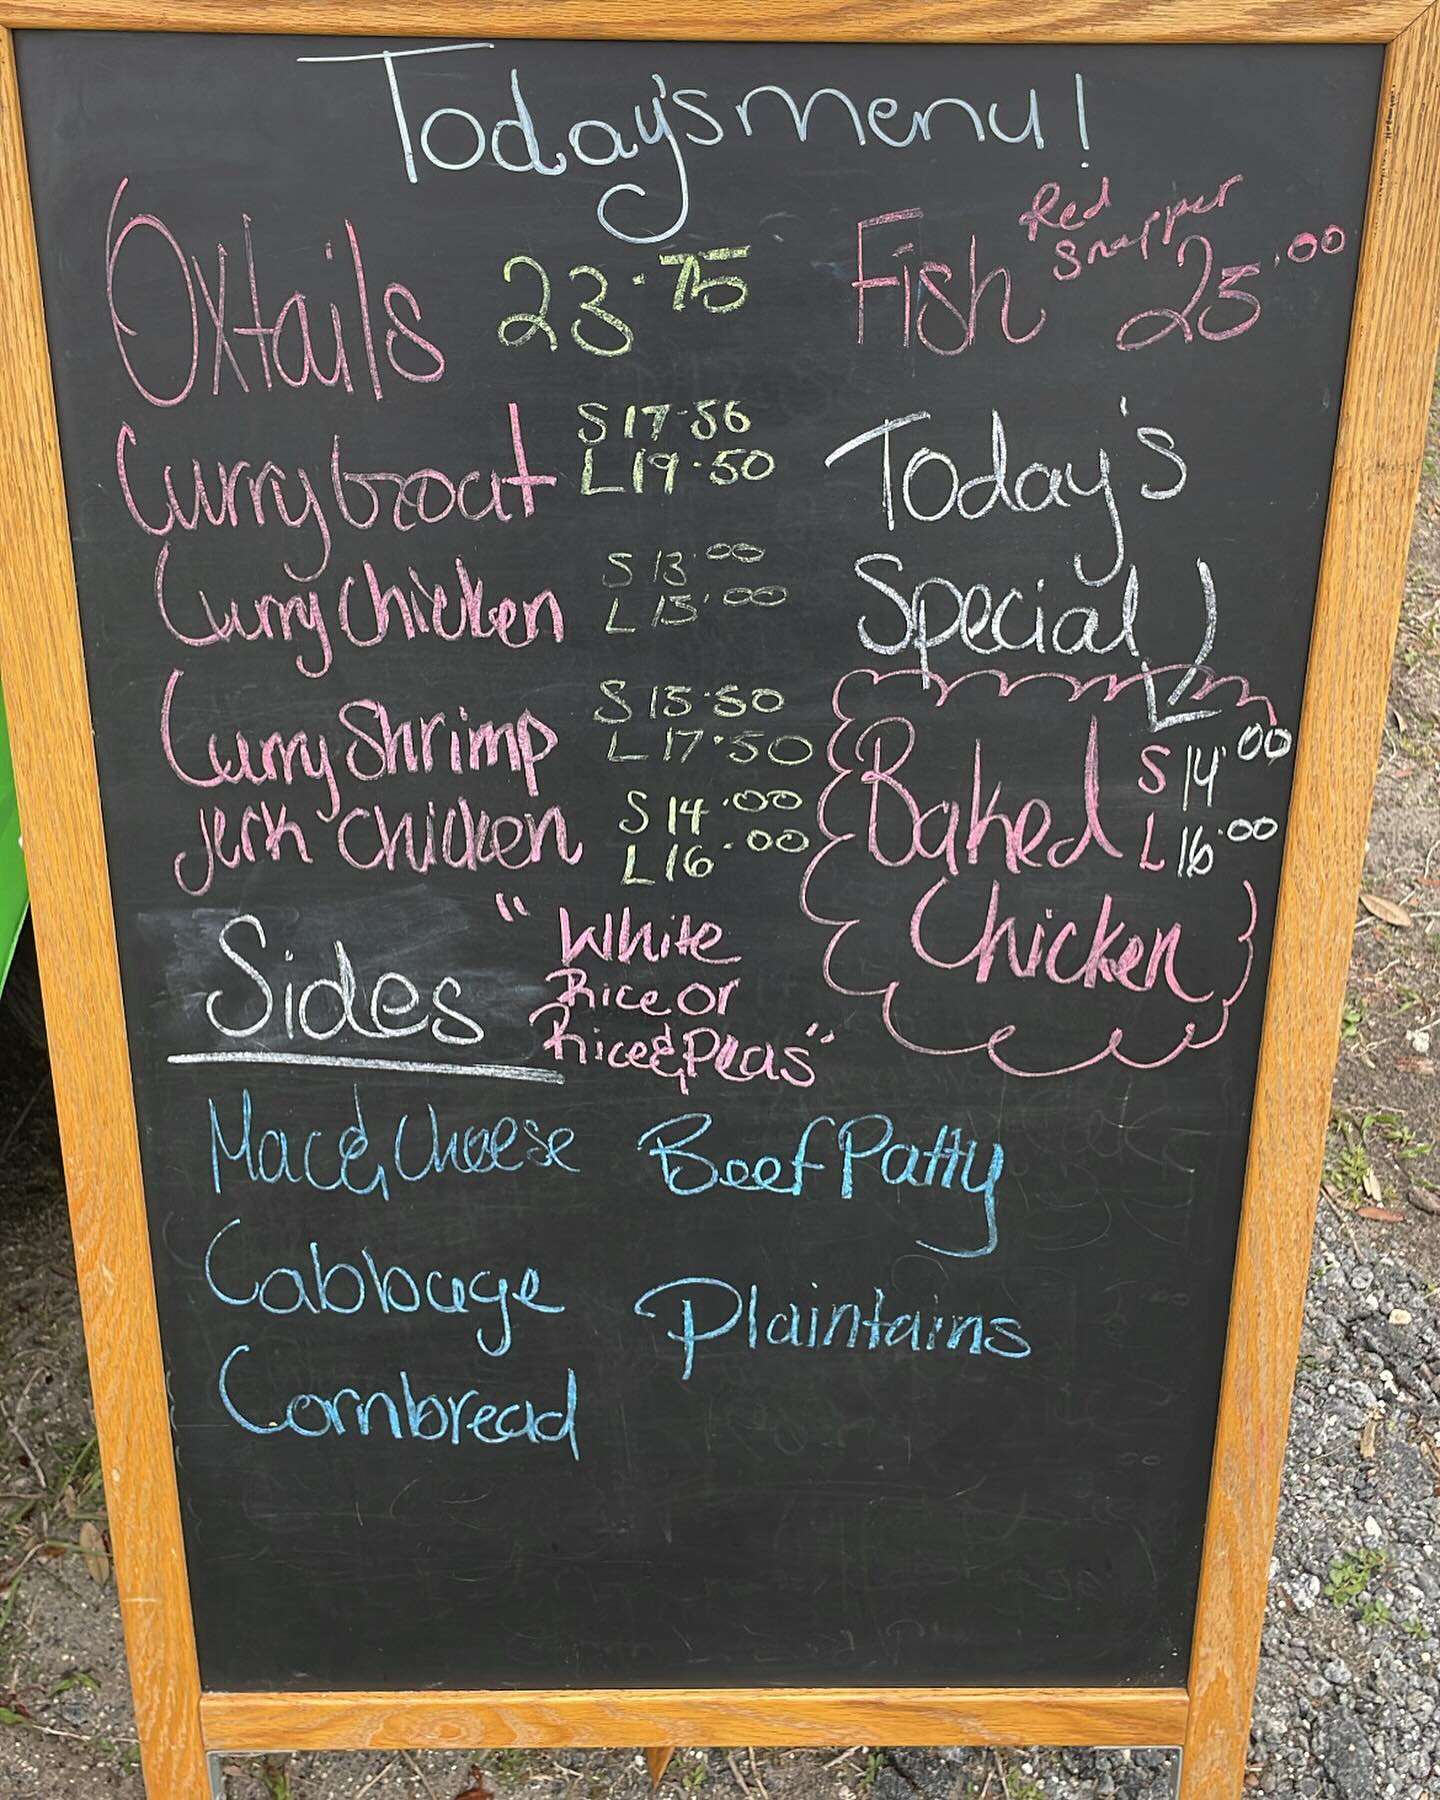 Today's menu!
Oxtails 23.75
Curry Goat S 17.50
L 19.50
Curry Chicken S 13.00
L 15.00
Curry Shrimp S 15.50
L 17.50
Jerk Chicken S 14.00
L 16.00
Fish Red
Snapper
25.00
Today's
Special!
Baked S 14.00
L 16.00
Chicken
Sides
"White
Rice or
Rice & Peas"
Mac & Cheese
Cabbage
Cornbread
Beef Patty
Plaintains